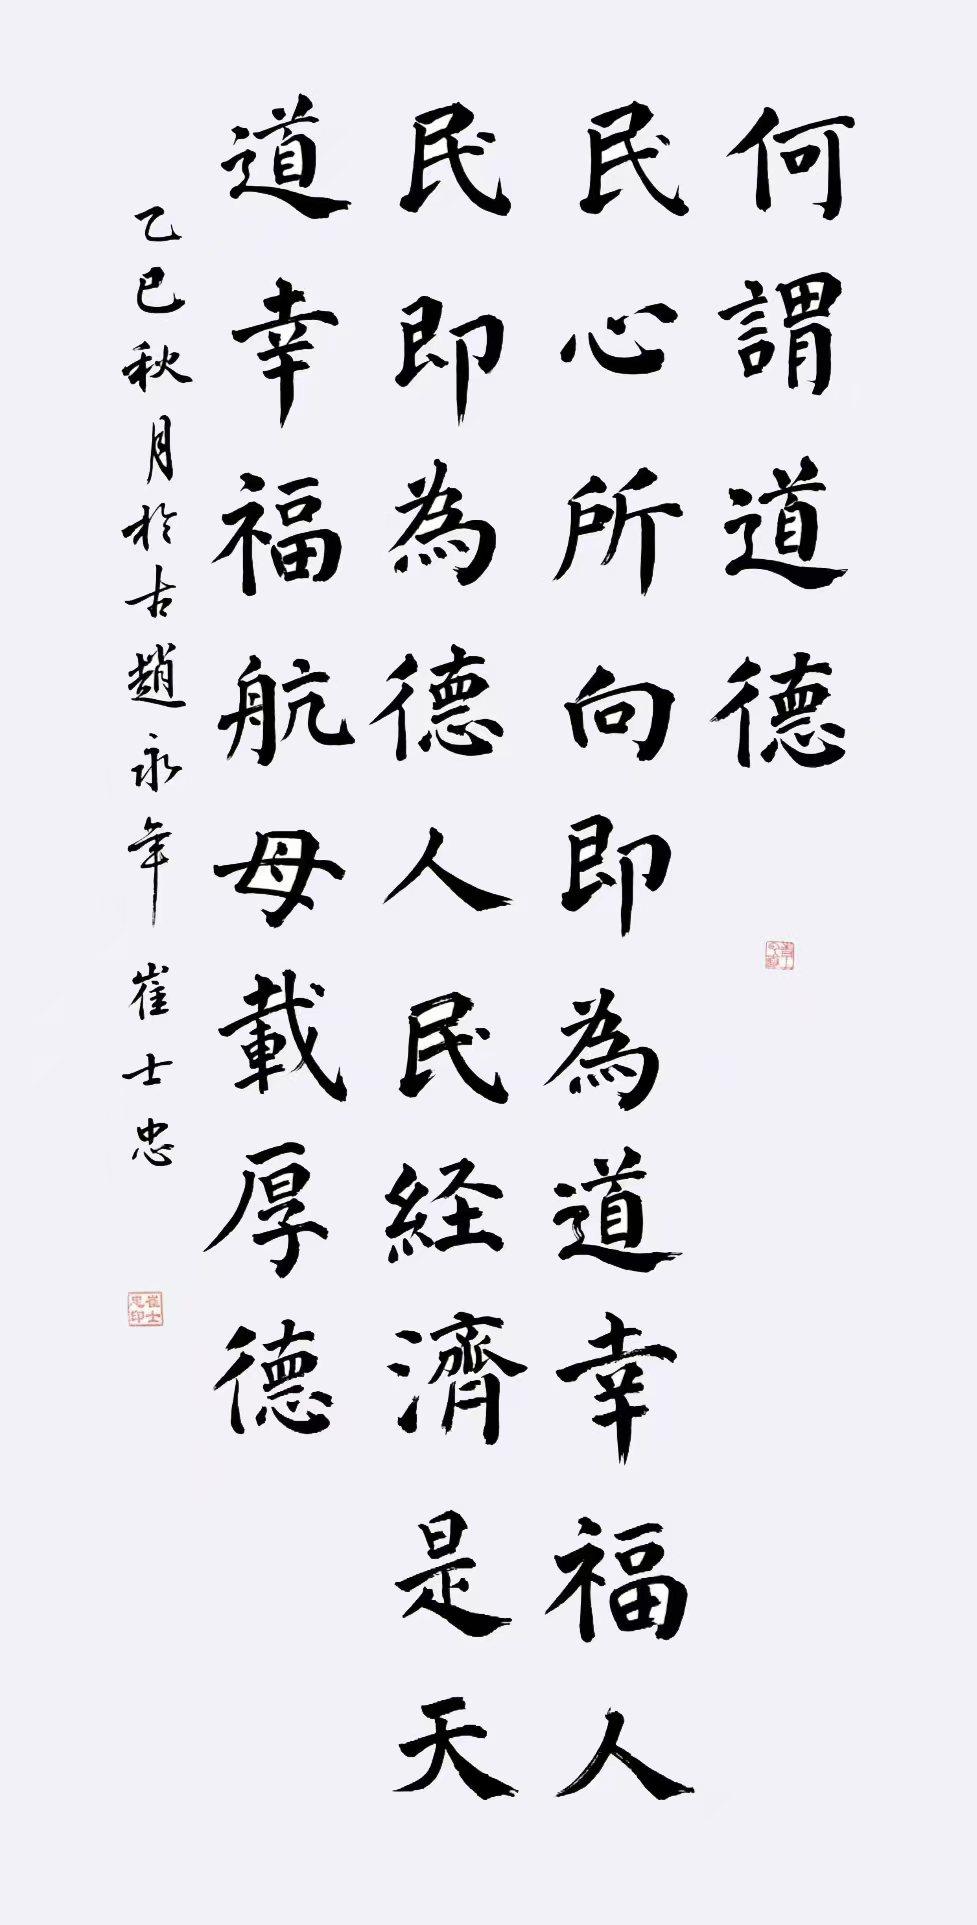 何謂道德
民心所向即為道幸福人
民即為德人民経濟是天
道幸福航母載厚德
乙巳秋月於古趙永年崔士忠
崔士忠印